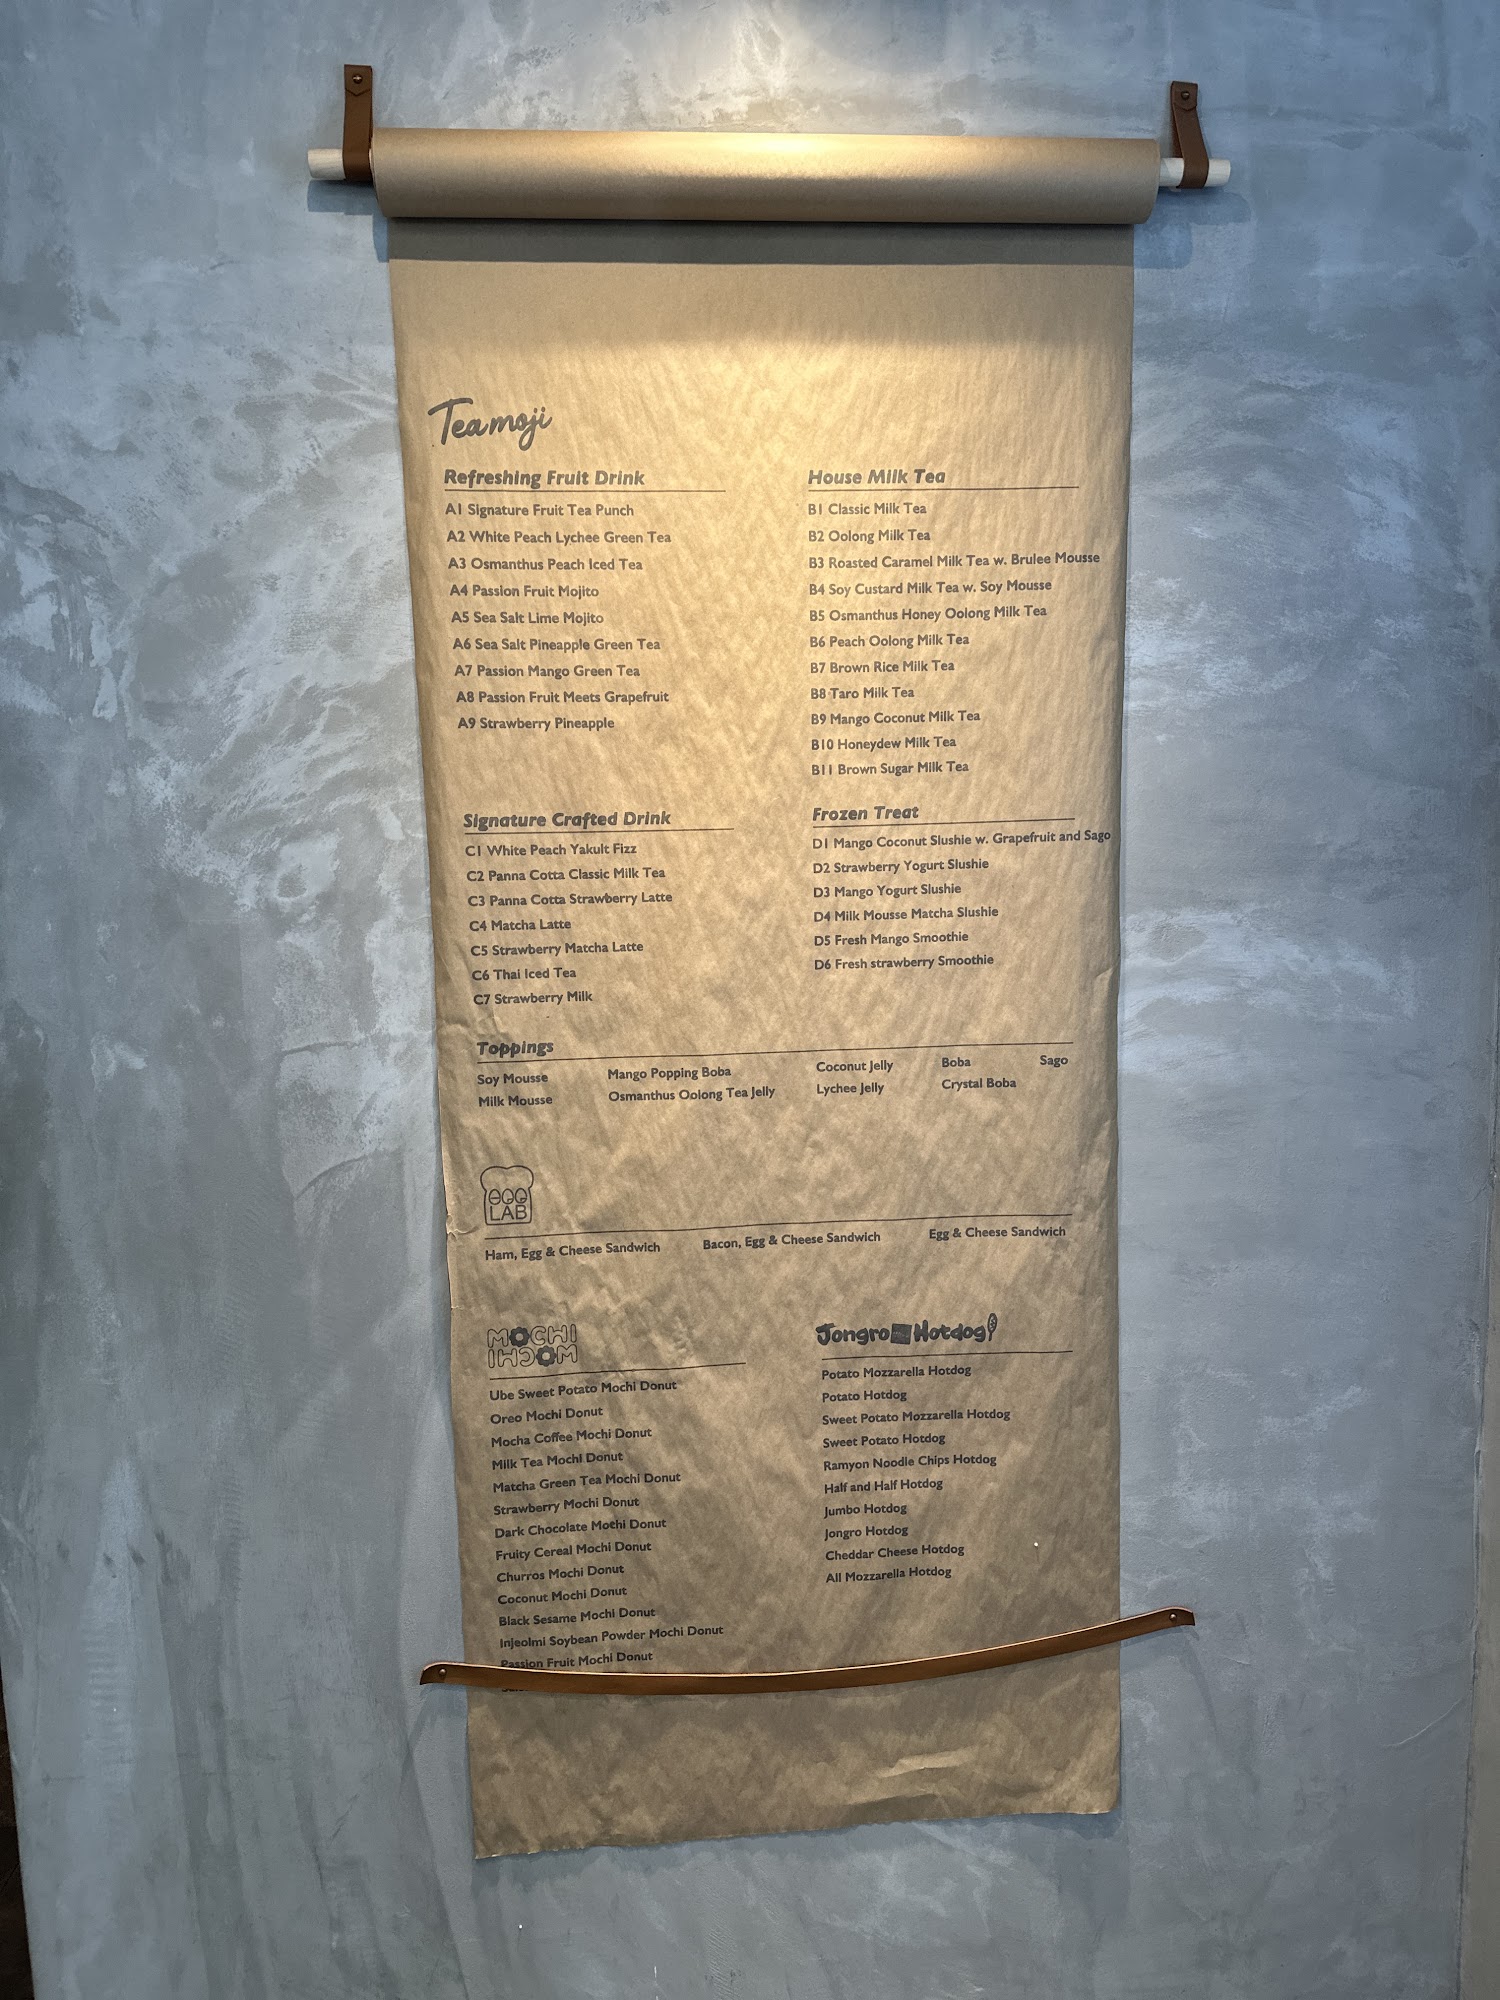 Teamoji
Refreshing Fruit Drink
A1 Signature Fruit Tea Punch
A2 White Peach Lychee Green Tea
A3 Osmanthus Peach Iced Tea
A4 Passion Fruit Mojito
A5 Sea Salt Lime Mojito
A6 Sea Salt Pineapple Green Tea
A7 Passion Mango Green Tea
A8 Passion Fruit Meets Grapefruit
A9 Strawberry Pineapple
House Milk Tea
B1 Classic Milk Tea
B2 Oolong Milk Tea
B3 Roasted Caramel Milk Tea w. Brulee Mousse
B4 Soy Custard Milk Tea w. Soy Mousse
B5 Osmanthus Honey Oolong Milk Tea
B6 Peach Oolong Milk Tea
B7 Brown Rice Milk Tea
B8 Taro Milk Tea
B9 Mango Coconut Milk Tea
B10 Honeydew Milk Tea
B11 Brown Sugar Milk Tea
Signature Crafted Drink
C1 White Peach Yakult Fizz
C2 Panna Cotta Classic Milk Tea
C3 Panna Cotta Strawberry Latte
C4 Matcha Latte
C5 Strawberry Matcha Latte
C6 Thai Iced Tea
C7 Strawberry Milk
Frozen Treat
D1 Mango Coconut Slushie w. Grapefruit and Sago
D2 Strawberry Yogurt Slushie
D3 Mango Yogurt Slushie
D4 Milk Mousse Matcha Slushie
D5 Fresh Mango Smoothie
D6 Fresh strawberry Smoothie
Toppings
Soy Mousse Mango Popping Boba Coconut Jelly Boba Sago
Milk Mousse Osmanthus Oolong Tea Jelly Lychee Jelly Crystal Boba
EGG
LAB
Ham, Egg & Cheese Sandwich Bacon, Egg & Cheese Sandwich Egg & Cheese Sandwich
MOCHI
MOCHI
Ube Sweet Potato Mochi Donut
Oreo Mochi Donut
Mocha Coffee Mochi Donut
Milk Tea Mochi Donut
Matcha Green Tea Mochi Donut
Strawberry Mochi Donut
Dark Chocolate Mochi Donut
Fruity Cereal Mochi Donut
Churros Mochi Donut
Coconut Mochi Donut
Black Sesame Mochi Donut
Injeolmi Soybean Powder Mochi Donut
Passion Fruit Mochi Donut
Jongro Hotdog
Potato Mozzarella Hotdog
Potato Hotdog
Sweet Potato Mozzarella Hotdog
Sweet Potato Hotdog
Ramyon Noodle Chips Hotdog
Half and Half Hotdog
Jumbo Hotdog
Jongro Hotdog
Cheddar Cheese Hotdog
All Mozzarella Hotdog